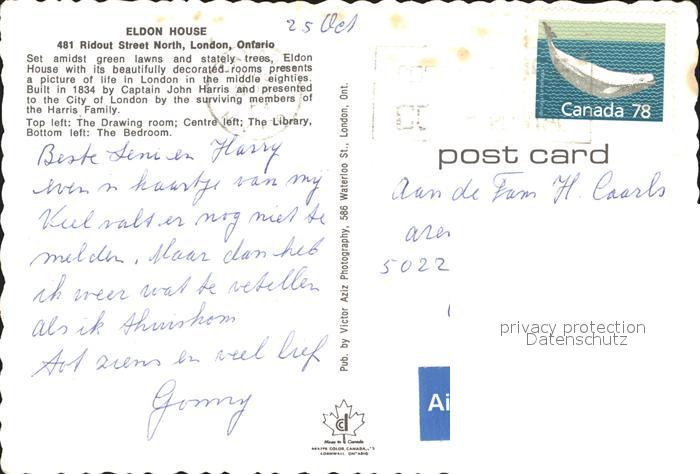 ELDON HOUSE
481 Ridout Street North, London, Ontario
Set amidst green lawns and stately trees, Eldon
House with its beautifully decorated rooms presents
a picture of life in London in the middle eighties.
Built in 1834 by Captain John Harris and presented
to the City of London by the surviving members of
the Harris Family.
Top left: The Drawing room; Centre left; The Library,
Bottom left: The Bedroom.
25 Oct
Beste Leni en Harry
even n kaartje van mij
Veel valt er nog niet te
melden. Maar dan heb
ik weer wat te vertellen
als ik thuiskom
Tot ziens en veel lief
Pub. by Victor Aziz Photography, 586 Waterloo St., London, Ont.
Made in Canada
CORNWALL ONTARIO
Canada 78
post card
Aan de Fam H. Caarls
5022
privacy protection
Datenschutz
Ai